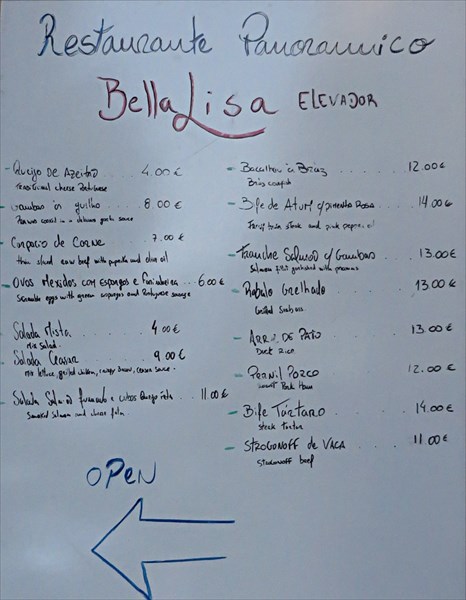 Restaurante Panoramico
BellaLisa ELEVADOR
- Queijo De Azeitão . . . 4.00 €
Tensional cheese Portuguese
- Gambas ò guilho . . . 8.00 €
in a sauce
Carpacio de Carne . . 7.00 €
thin sliced raw beef with and olive oil
- Ovos Mexidos com Espargos e Farinheira . . 6.00 €
Scramble eggs with green asparagus and Portuguese sausage
Salada Mista . . . 4.00 €
Mix Salad
Salada Ceasar . . . 9.00 €
Mix lettuce, grilled chicken, crispy bacon, ceasar sauce
Salada Salmão fumado e cubos Queijo feta . . 11.00 €
Smoked salmon and cheese feta
- Bacalhau à Bráz . . . 12.00 €
Brás codfish
- Bife de Atum c/pimenta Rosa . . 14.00 €
tuna steak and pink pepper oil
- Tranche Salmão c/ Gambas . . 13.00 €
Salmon fillet with prawns
- Robalo Grelhado . . . 13.00 €
Grilled Seabass
- ARROZ DE PATO . . . 13.00 €
Duck Rice
- PERNIL PORCO . . . 12.00 €
Pork Ham
- Bife Tártaro . . . 14.00 €
steak tartar
- STROGONOFF de VACA . . . 11.00 €
Strogonoff beef
OPEN